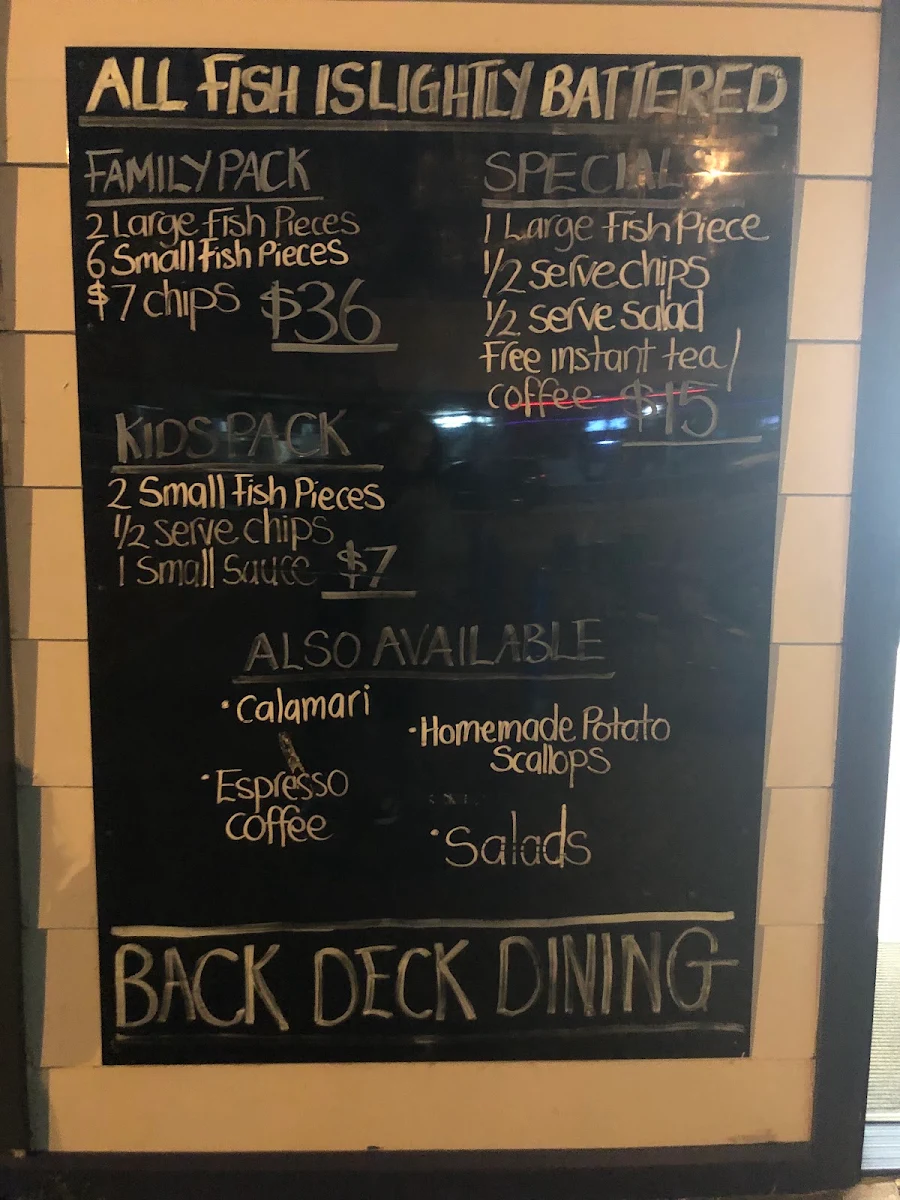 ALL FISH IS LIGHTLY BATTERED
FAMILY PACK
2 Large Fish Pieces
6 Small Fish Pieces
$7 chips $36
SPECIAL
1 Large Fish Piece
1/2 serve chips
1/2 serve salad
Free instant tea/
coffee $15
KIDS PACK
2 Small Fish Pieces
1/2 serve chips
1 Small Sauce $7
ALSO AVAILABLE
• Calamari
• Homemade Potato
Scallops
• Espresso
coffee
• Salads
BACK DECK DINING